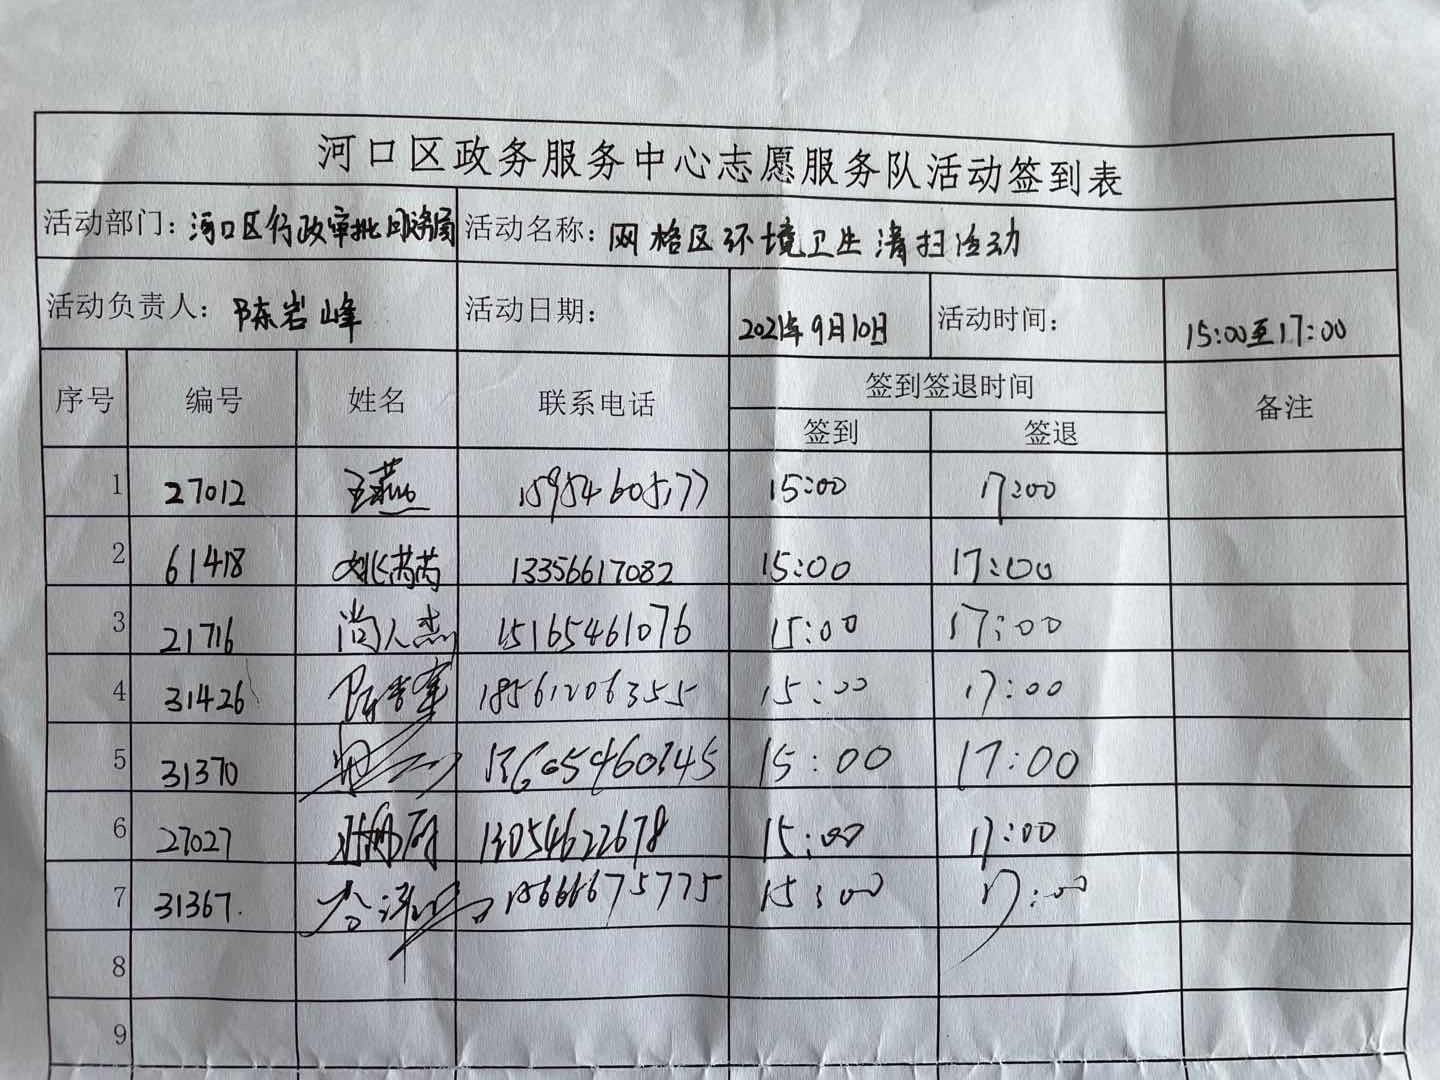 河口区政务服务中心志愿服务队活动签到表
活动部门：河口区行政审批服务局 活动名称：网格区环境卫生清扫活动
活动负责人：陈岩峰 活动日期： 2021年9月10日 活动时间： 15:00至17:00
序号 编号 姓名 联系电话 签到签退时间 备注
签到 签退
1 27012 王燕 15954605177 15:00 17:00
2 61418 姚芮芮 13356617082 15:00 17:00
3 21716 尚人杰 15165461076 15:00 17:00
4 31426 18561206355 15:00 17:00
5 31370 13605460345 15:00 17:00
6 27027 13054622678 15:00 17:00
7 31367. 15:00 17:00
8
9